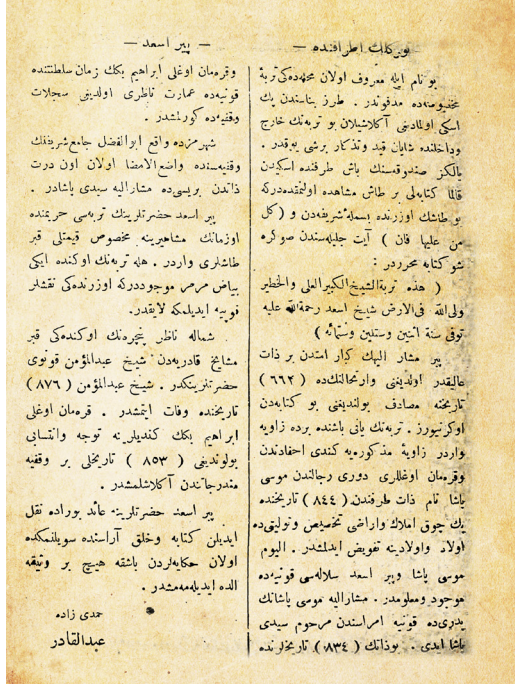 بو زكات اطرافنده —
— پیر اسعد —
بو نام ایله معروف اولان محله‌ده‌كی تربهٔ
مخصوصه‌ده مدفوندر . طرز بناسندن پك
اسكی اولمادیغی آكلاشیلان بو تربه‌نك خارج
وداخلنده شایان قید وتذكار برشی یوقدر .
یالكز صندوقه‌سنك باش طرفنده اسكیدن
قالما كتابه‌لی بر طاش مشاهده اولنمقده‌دركه
بو طاشك اوزرنده بسملهٔ شریفه‌دن و ( كل
من علیها فان ) آیت جلیله‌سندن صوكره
شو كتابه محرردر :
( هذه تربة الشیخ الكبیر العلی والخطیر
ولی الله فی الارض شیخ اسعد رحمة الله علیه
توفی سنة اثنین وستین وستمائه )
پیر مشار الیهك كبار امتدن بر ذات
عالیقدر اولدیغنی وارتحالنك‌ده ( ٦٦٢ )
تاریخنه مصادف بولندیغنی بو كتابه‌دن
اوكرنیورز . تربه‌نك یانی باشنده برده زاویه
واردر زاویهٔ مذكوره‌یه كندی احفادندن
وقره‌مان اوغللری دوری رجالندن موسی
پاشا نام ذات طرفندن ( ٨٤٤ ) تاریخنده
پك چوق املاك واراضی تخصیص وتولیتی‌ده
اولاد واولادینه تفویض ایدلمشدر . الیوم
موسی پاشا وپیر اسعد سلاله‌سی قونیه‌ده
موجود ومعلومدر . مشارالیه موسی پاشانك
پدری‌ده قونیه امراسندن مرحوم سیدی
پاشا ایدی . بوذاتك ( ٨٣٤ ) تاریخلرنده
وقره‌مان اوغلی ابراهیم بكك زمان سلطنتنده
قونیه‌ده عمارت ناظری اولدیغی سجلات
وقفیه‌ده كورلمشدر .
شهرمزده واقع ابوالفضل جامع شریفنك
وقفیه‌سنده واضع الامضا اولان اون درت
ذاتدن بریسی‌ده مشارالیه سیدی پاشادر .
پیر اسعد حضرتلرینك تربه‌سی حریمنده
اوزمانك مشاهیرینه مخصوص قیمتلی قبر
طاشلری واردر . هله تربه‌نك اوكنده ایكی
بیاض مرمر موجوددركه اوزرنده‌كی نقشلر
قوپیه ایدیلمكه لایقدر .
شماله ناظر پنجره‌نك اوكنده‌كی قبر
مشایخ قادریه‌دن شیخ عبدالمؤمن قونوی
حضرتلرینكدر . شیخ عبدالمؤمن ( ٨٧٦ )
تاریخنده وفات ایتمشدر . قره‌مان اوغلی
ابراهیم بكك كندیلرینه توجه وانتسابی
بولوندیغی ( ٨٥٣ ) تاریخلی بر وقفیه
مندرجاتندن آكلاشلمشدر .
پیر اسعد حضرتلرینه عائد بوراده نقل
ایدیلن كتابه وخلق آراسنده سویلنمكده
اولان حكایه‌لردن باشقه هیچ بر وثیقه
الده ایدیله‌مه‌مشدر .
حمدی زاده
عبدالقادر